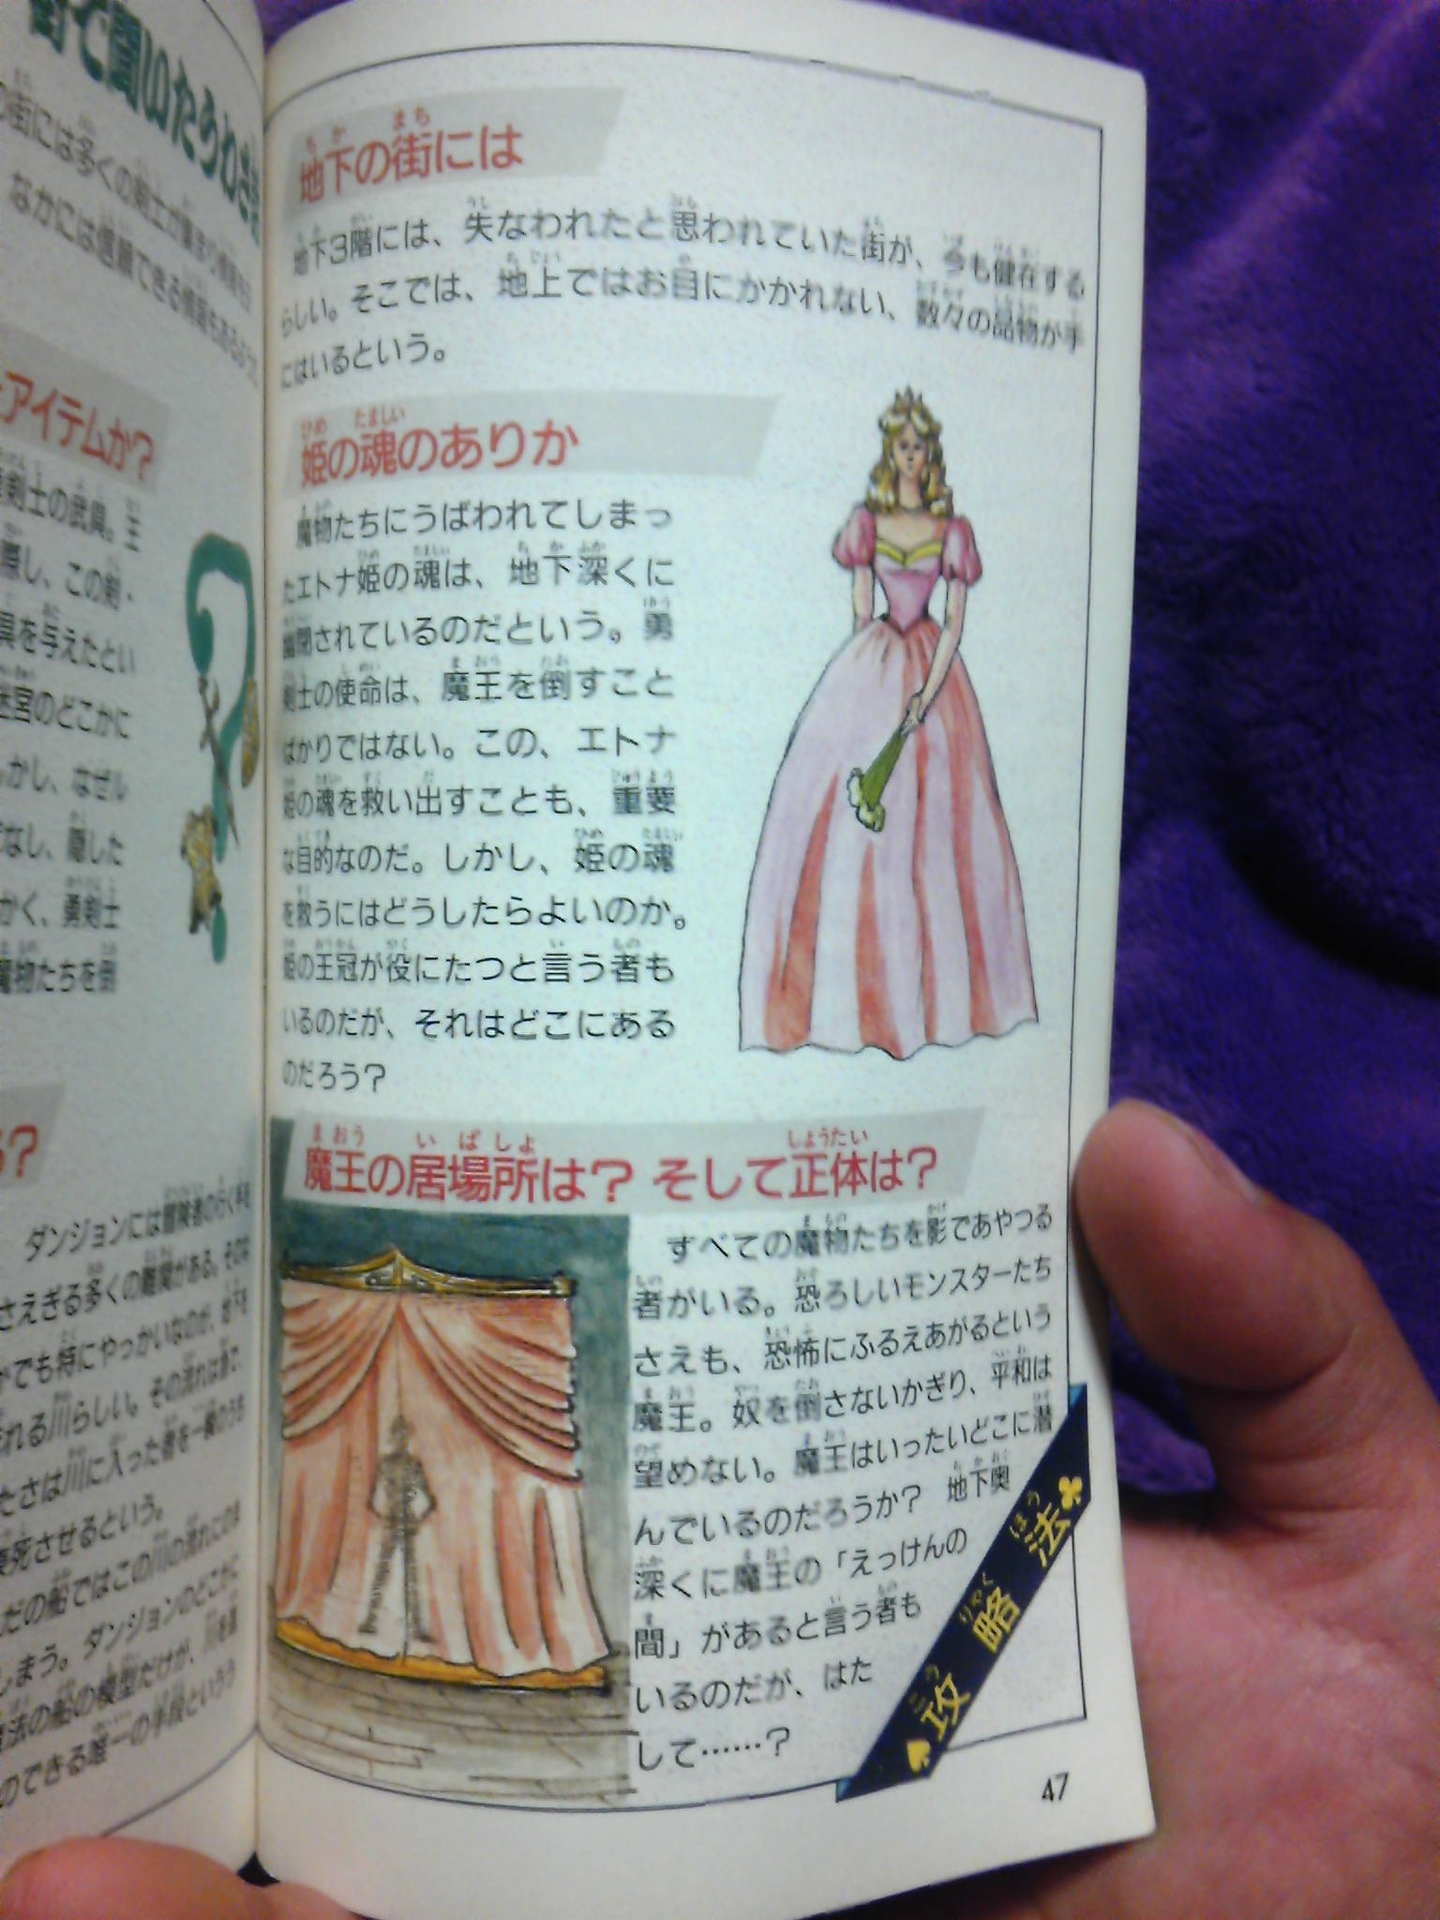 街で聞いたうわさ
の街には多くの剣士が集まり情報を
なかには信頼できる情報もあるようだ
アイテムか?
剣士の武具。王
際し、この剣・
具を与えたとい
迷宮のどこかに
かし、なぜル
なし、隠した
かく、勇剣士
魔物たちを倒
?
ダンジョンには冒険者の行く手を
さえぎる多くの難関がある。その
かでも特にやっかいなのが、地下を
れる川らしい。その流れは
たさは川に入った者を一瞬のうち
死させるという。
だの船ではこの川の流れに
しまう。ダンジョンのどこかに
魔法の船の模型だけが、川を
のできる唯一の手段という
地下の街には
地下3階には、失なわれたと思われていた街が、今も健在する
らしい。そこでは、地上ではお目にかかれない、数々の品物が手
にはいるという。
姫の魂のありか
魔物たちにうばわれてしまっ
たエトナ姫の魂は、地下深くに
幽閉されているのだという。勇
剣士の使命は、魔王を倒すこと
ばかりではない。この、エトナ
姫の魂を救い出すことも、重要
な目的なのだ。しかし、姫の魂
を救うにはどうしたらよいのか。
姫の王冠が役にたつと言う者も
いるのだが、それはどこにある
のだろう?
魔王の居場所は? そして正体は?
すべての魔物たちを影であやつる
者がいる。恐ろしいモンスターたち
さえも、恐怖にふるえあがるという
魔王。奴を倒さないかぎり、平和は
望めない。魔王はいったいどこに潜
んでいるのだろうか? 地下奥
深くに魔王の「えっけんの
間」があると言う者も
いるのだが、はた
して……?
攻略法
47